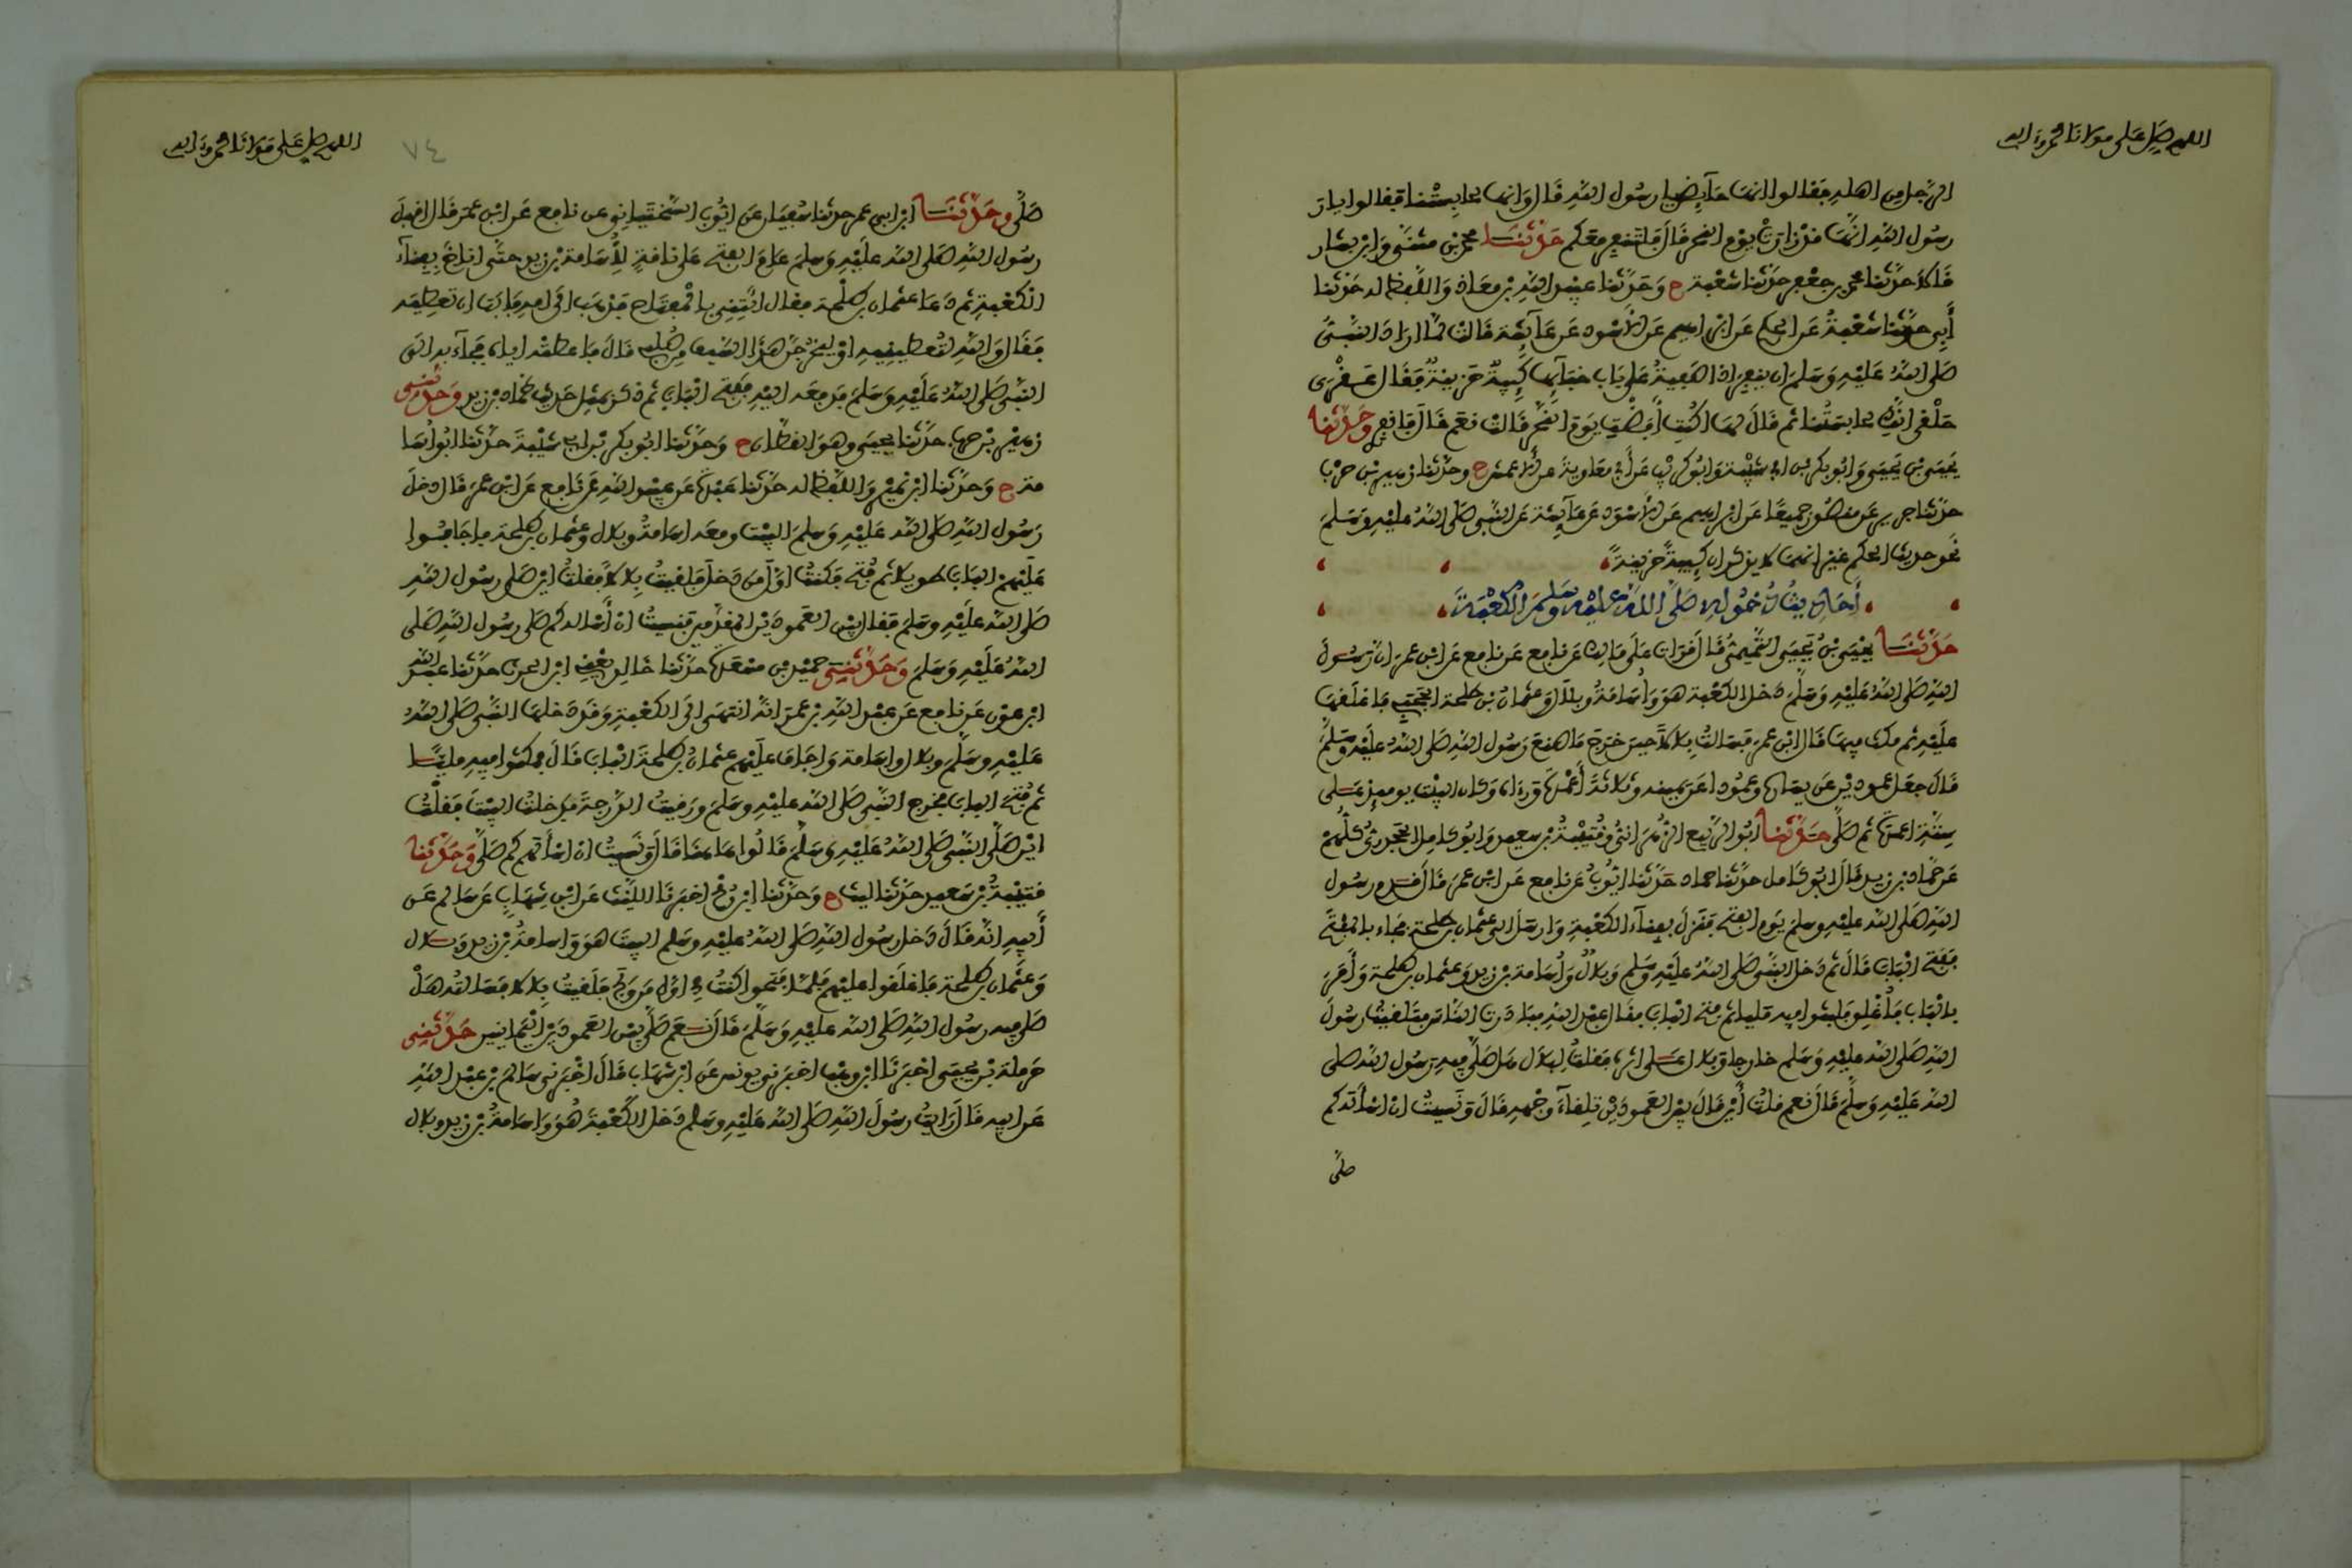 اللهم صل على مولانا محمد وءاله
الرجل من اهله فقالوا انها حآيض يا رسول الله قال وانها لحابستنا فقالوا يا
رسول الله انها قد زارت يوم النحر قال فلتنفر معكم حدثنا محمد بن مثنى وابن بشار
قالا حدثنا محمد بن جعفر حدثنا شعبة ح وحدثنا عبيد الله بن معاذ واللفظ له حدثنا
أبي حدثنا شعبة عن الحكم عن ابراهيم عن الاسود عن عآئشة قالت لما اراد النبي
صلى الله عليه وسلم ان ينفر اذا صفية على باب خبآئها كئيبة حزينة فقال عقرى
حلقى انك لحابستنا ثم قال لها اكنت أفضت يوم النحر قالت نعم قال فانفري وحدثنا
يحيى بن يحيى وابو بكر بن ابي شيبة وابو كريب عن أبي معاوية عن الاعمش ح وحدثنا زهير بن حرب
حدثنا جرير عن منصور جميعا عن ابراهيم عن الاسود عن عآئشة عن النبي صلى الله عليه وسلم
نحو حديث الحكم غير انهما لا يذكران كئيبة حزينة
أحاديث دخوله صلى الله عليه وسلم الكعبة
حدثنا يحيى بن يحيى التميمي قال قرات على مالك عن نافع عن نافع عن ابن عمر ان رسول
الله صلى الله عليه وسلم دخل الكعبة هو واسامة وبلال وعثمان بن طلحة الحجبي فاغلقها
عليه ثم مكث فيها قال ابن عمر فسالت بلالا حين خرج ما صنع رسول الله صلى الله عليه وسلم
قال جعل عمودين عن يساره وعمودا عن يمينه وثلاثة أعمدة وراءه وكان البيت يومئذ على
ستة اعمدة ثم صلى حدثنا ابو الربيع الزهراني وقتيبة بن سعيد وابو كامل الجحدري كلهم
عن حماد بن زيد قال ابو كامل حدثنا حماد حدثنا ايوب عن نافع عن ابن عمر قال قدم رسول
الله صلى الله عليه وسلم يوم الفتح فنزل بفنآء الكعبة وارسل الى عثمان بن طلحة فجاء بالمفتح
ففتح الباب قال ثم دخل النبي صلى الله عليه وسلم وبلال وأسامة بن زيد وعثمان بن طلحة وأمر
بالباب فأغلق فلبثوا فيه مليا ثم فتح الباب فقال عبد الله فبادرت الناس فتلقيت رسول
الله صلى الله عليه وسلم خارجا وبلال على اثره فقلت لبلال هل صلى فيه رسول الله صلى
الله عليه وسلم قال نعم قلت أين قال بين العمودين تلقآء وجهه قال ونسيت ان اسأله كم
صلى
اللهم صل على مولانا محمد وءاله
٧٤
صلى وحدثنا ابن ابي عمر حدثنا سفيان عن ايوب السختياني عن نافع عن ابن عمر قال اقبل
رسول الله صلى الله عليه وسلم عام الفتح على ناقة لأسامة بن زيد حتى اناخ بفنآء
الكعبة ثم دعا عثمان بن طلحة فقال ائتني بالمفتاح فذهب الى امه فابت ان تعطيه
فقال والله لتعطينيه او ليخرجن هذا السيف من صلبي قال فاعطته اياه فجآء به الى
النبي صلى الله عليه وسلم فدفعه اليه ففتح الباب ثم ذكر بمثل حديث حماد بن زيد وحدثني
زهير بن حرب حدثنا يحيى وهو القطان ح وحدثنا ابو بكر بن ابي شيبة حدثنا ابو أسا
مة ح وحدثنا ابن نمير واللفظ له حدثنا عبدة عن عبيد الله عن نافع عن ابن عمر قال دخل
رسول الله صلى الله عليه وسلم البيت ومعه اسامة وبلال وعثمان بن طلحة فاجافوا
عليهم الباب طويلا ثم فتح فكنت اول من دخل فلقيت بلالا فقلت اين صلى رسول الله
صلى الله عليه وسلم فقال بين العمودين المقدمين فنسيت ان أساله كم صلى رسول الله صلى
الله عليه وسلم وحدثني حميد بن مسعدة حدثنا خالد يعني ابن الحرث حدثنا عبد الله
ابن عون عن نافع عن عبد الله بن عمر انه انتهى الى الكعبة وقد دخلها النبي صلى الله
عليه وسلم وبلال واسامة واجاف عليهم عثمان بن طلحة الباب قال فمكثوا فيه مليا
ثم فتح الباب فخرج النبي صلى الله عليه وسلم ورقيت الدرجة فدخلت البيت فقلت
اين صلى النبي صلى الله عليه وسلم قالوا هاهنا قال ونسيت ان اسألهم كم صلى وحدثنا
قتيبة بن سعيد حدثنا ليث ح وحدثنا ابن رمح اخبرنا الليث عن ابن شهاب عن سالم عن
أبيه انه قال دخل رسول الله صلى الله عليه وسلم البيت هو واسامة بن زيد وبلال
وعثمان بن طلحة فاغلقوا عليهم فلما فتحوا كنت في اول من ولج فلقيت بلالا فسالته هل
صلى فيه رسول الله صلى الله عليه وسلم قال نعم صلى بين العمودين اليمانيين حدثني
حرملة بن يحيى اخبرنا ابن وهب اخبرني يونس عن ابن شهاب قال اخبرني سالم بن عبد الله
عن ابيه قال رايت رسول الله صلى الله عليه وسلم دخل الكعبة هو واسامة بن زيد وبلال